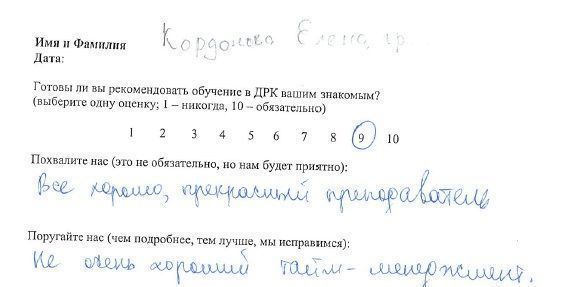 Имя и Фамилия Кордонско Елена, гр...
Дата:
Готовы ли вы рекомендовать обучение в ДРК вашим знакомым?
(выберите одну оценку; 1 – никогда, 10 – обязательно)
1 2 3 4 5 6 7 8 9 10
Похвалите нас (это не обязательно, но нам будет приятно):
Все хорошо, прекрасный преподаватель
Поругайте нас (чем подробнее, тем лучше, мы исправимся):
Не очень хороший тайм-менеджмент.